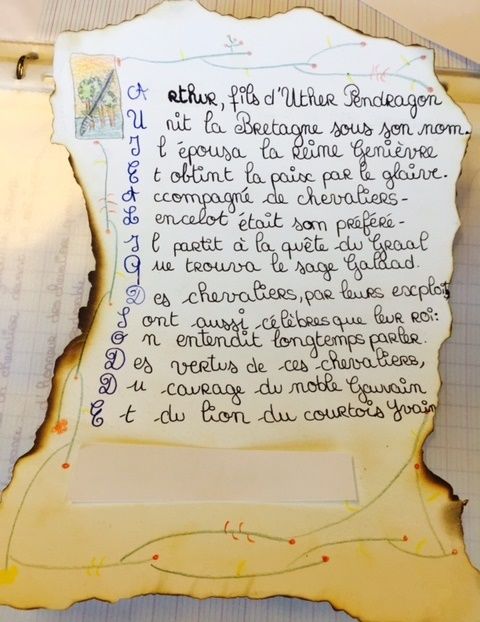 Arthur, fils d'Uther Pendragon
Unit la Bretagne sous son nom.
Il épousa la reine Genièvre
Et obtint la paix par le glaive.
Accompagné de chevaliers-
Lencelot était son préféré-
Il partit à la quête du Graal
Que trouva le sage Galaad.
Des chevaliers, par leurs exploits
Sont aussi célèbres que leur roi:
On entendit longtemps parler.
Des vertus de ces chevaliers,
Du courage du noble Gauvain
Et du lion du courtois Yvain